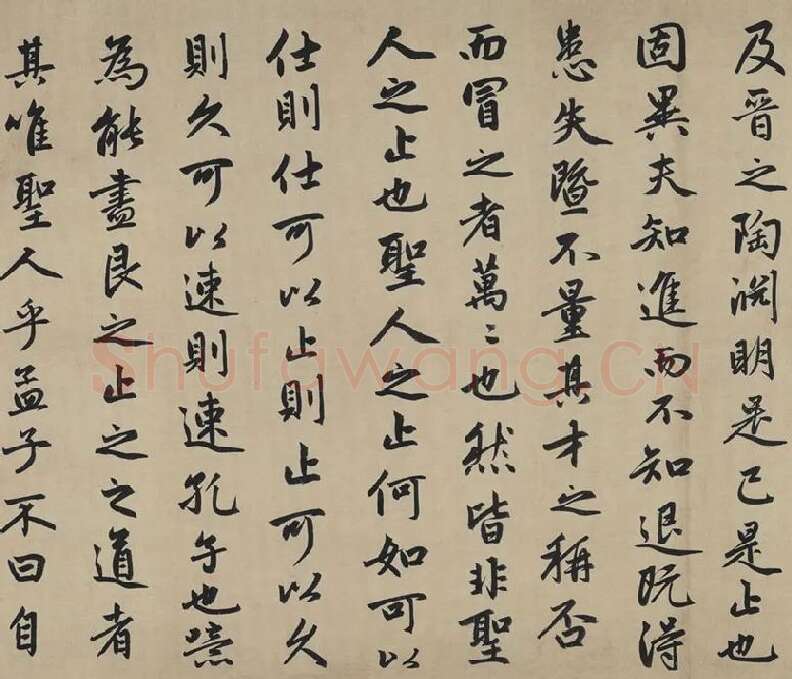 及晉之陶淵明是已是止也
固異夫知進而不知退既得
患失暨不量其才之稱否
而冒之者萬〻也然皆非聖
人之止也聖人之止何如可以
仕則仕可以止則止可以久
則久可以速則速孔子也噫
為能盡艮之止之之道者
其唯聖人乎孟子不曰自
Shufawang.CN